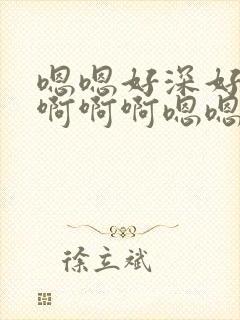 嗯嗯好深好
啊啊啊嗯嗯
徐立斌